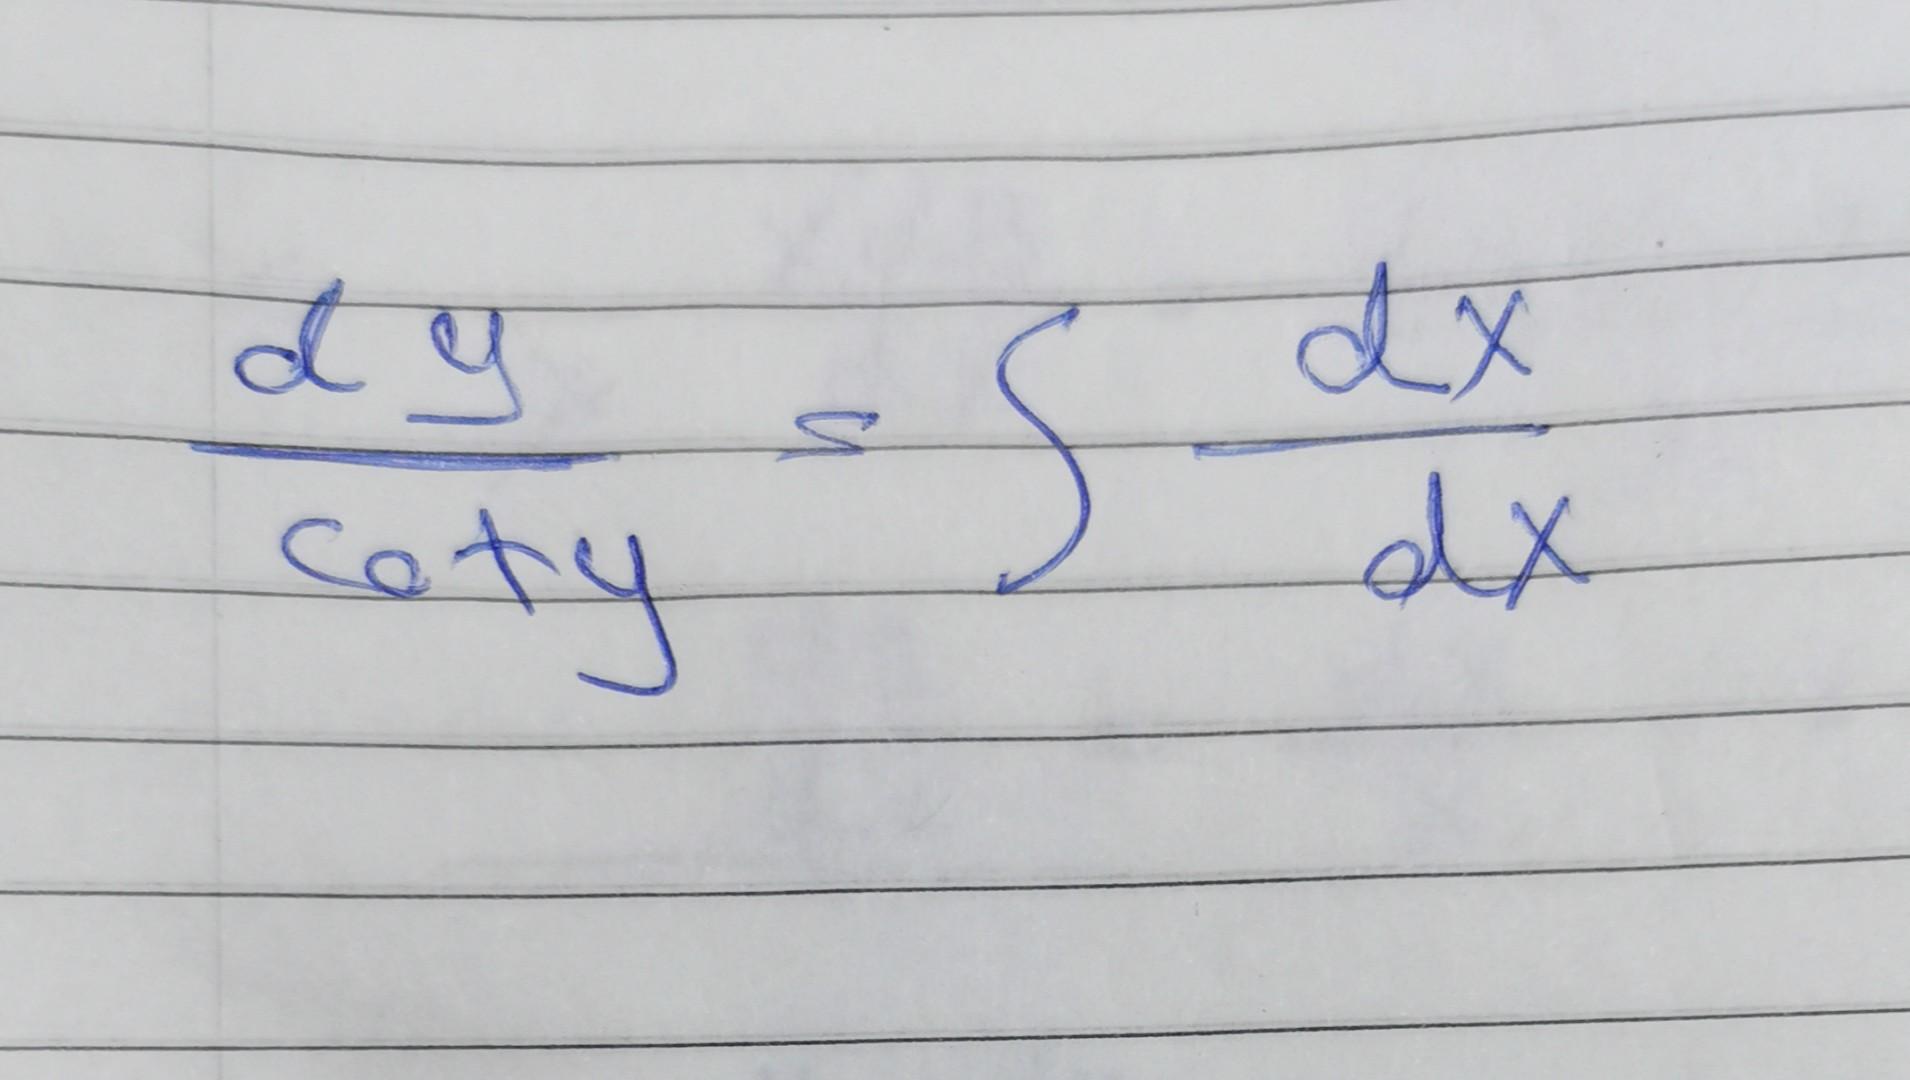 dy/cot y = ∫ dx/dx